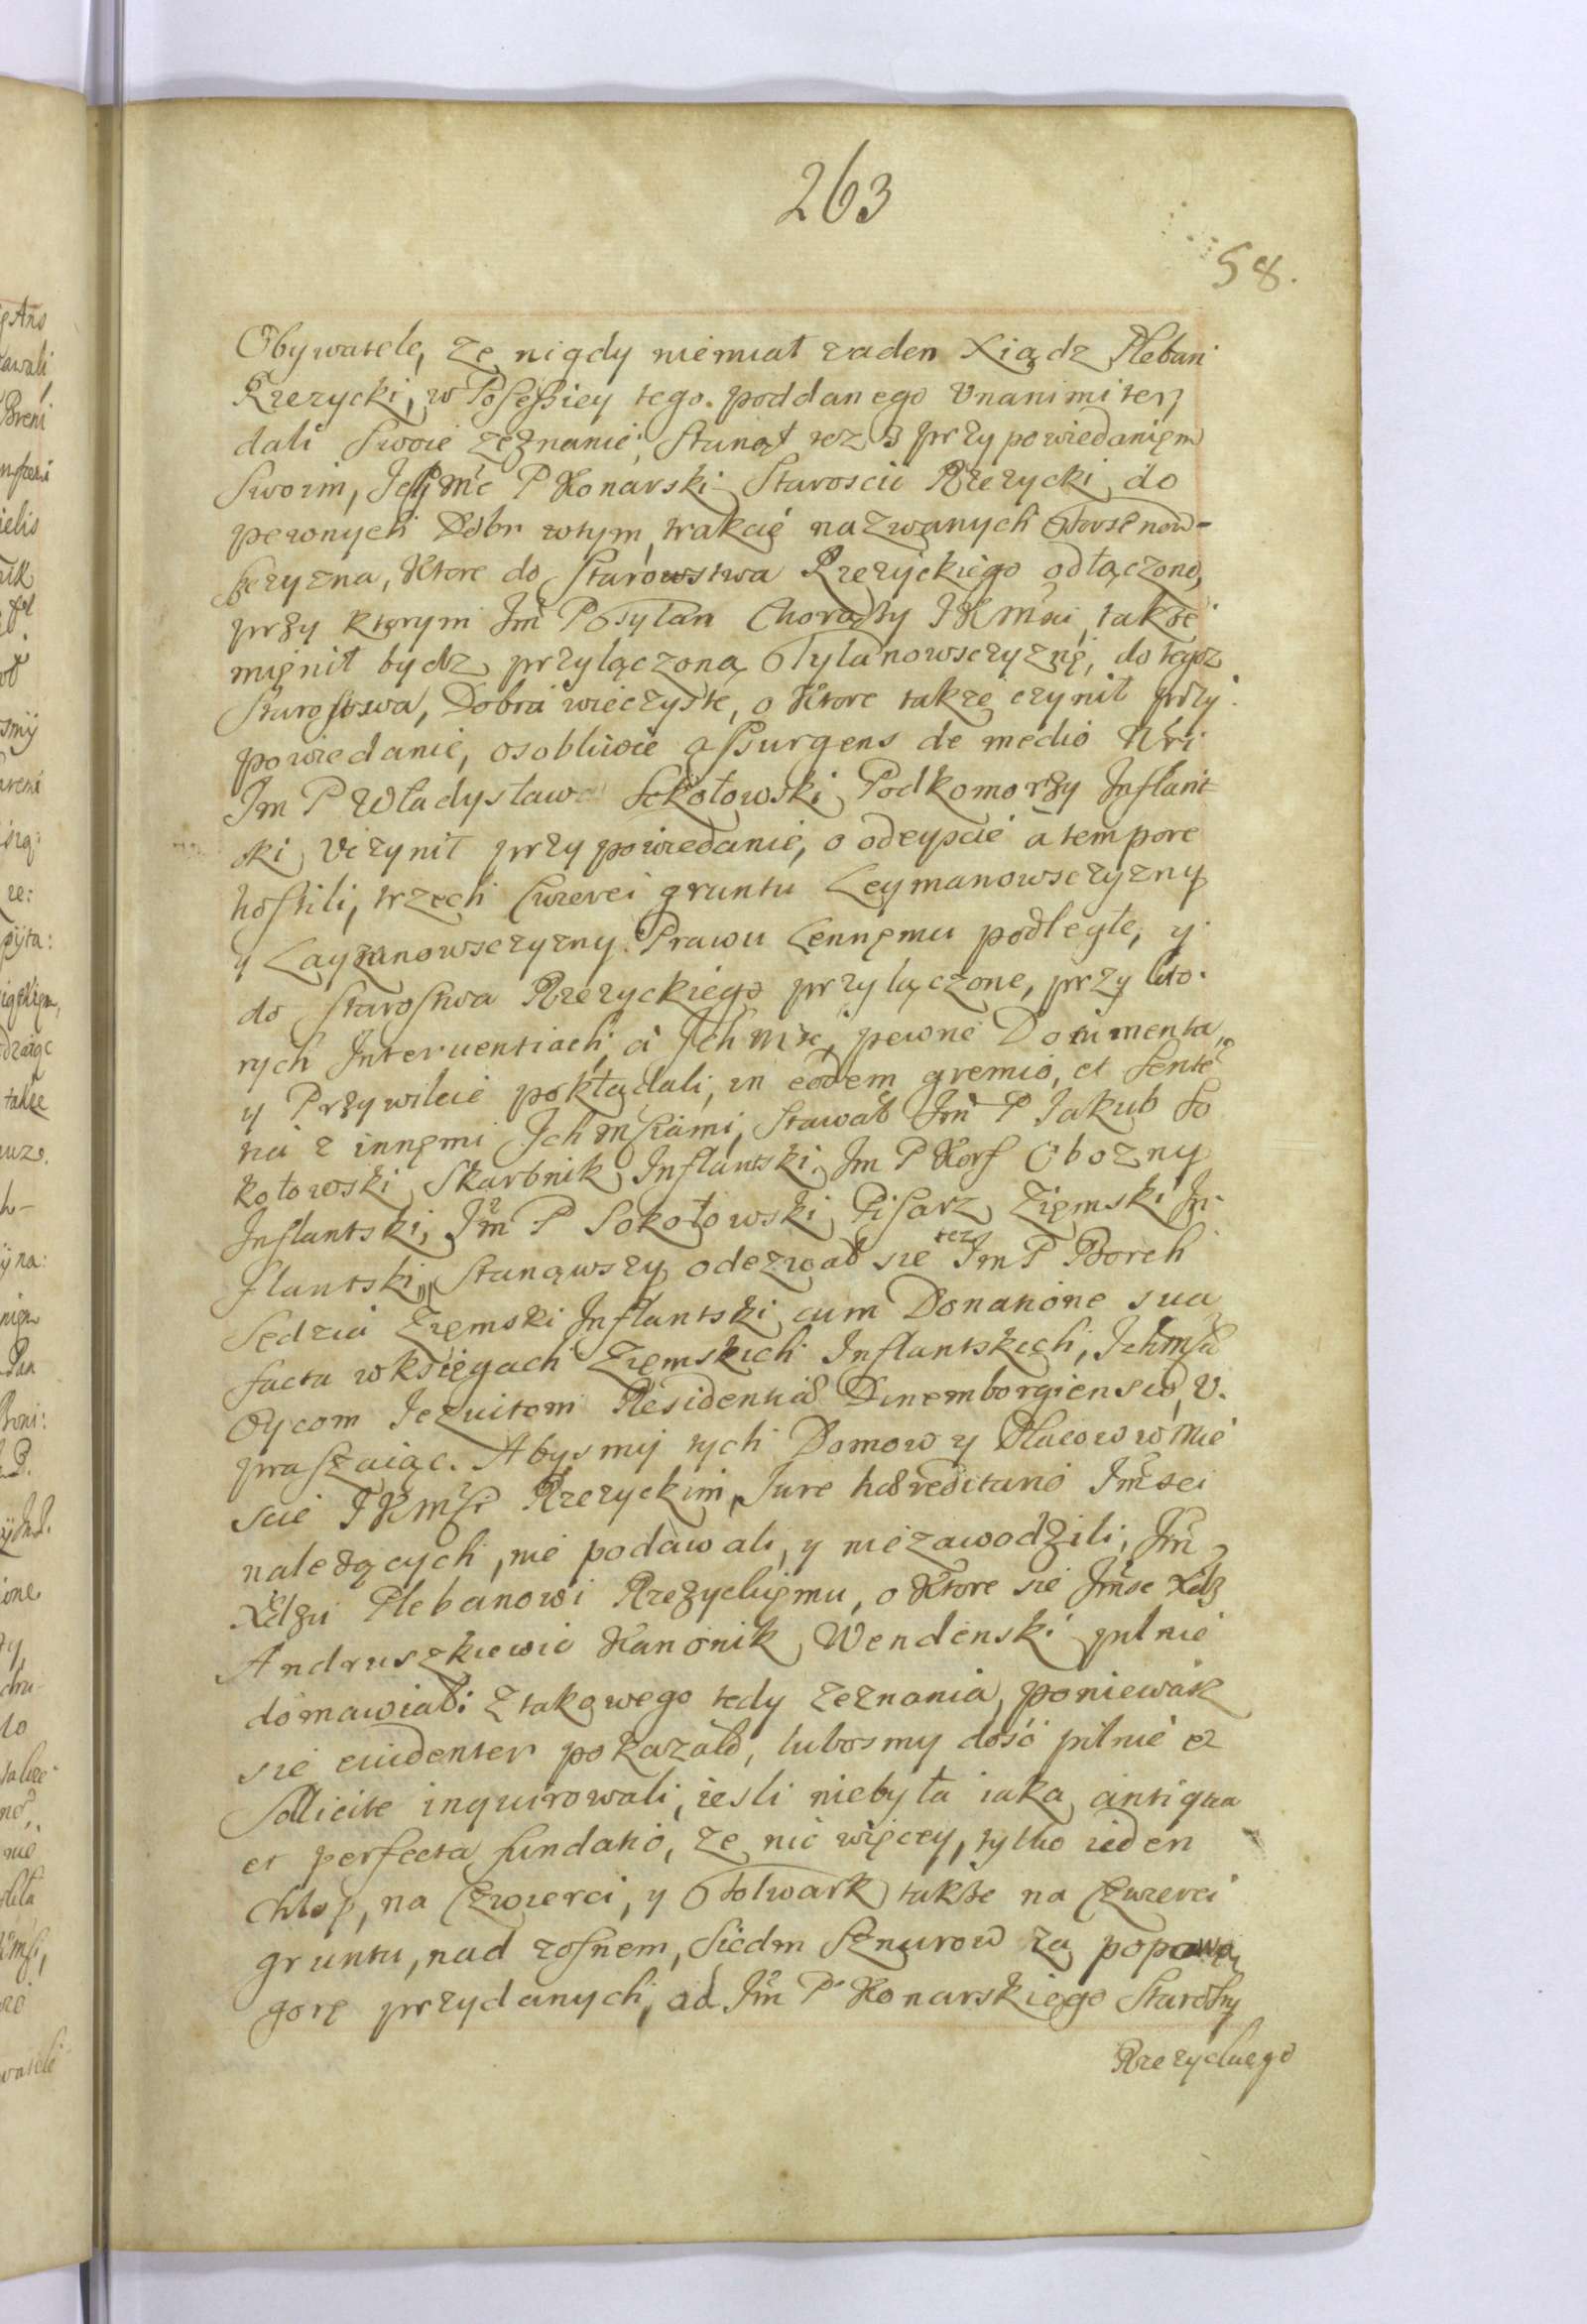 263
58.
Obywatele, ze nigdy niemiał zaden Xiądz Pleban
Rzezycki, w Posessiey tego poddanego Unanimiter,
dali swoie zeznanie; Stunął tez z przypowiedanięm
Swoim, Jeg Mć P Konarski Staroscic Rzezycki do
pewnych Dobr wtym trakcie nazwanych
sczyzna, Ktore do Starowstwa Rzezyckiego odłączono,
przy ktorym Jm̃ P Tylan Chorąży JKMści, takze
mięnił bydz przyłączoną Tylanowsczyznę, do tegoz
Starostwa, Dobra wieczyste, o Ktore takze czynił przy
powiedanie, osobliwie assurgens de medio Nr̃i
Jm P Władysław Sokołowski Podkomorzy Inflant
ski Vczynił przypowiedanie, o odeyscie a tempore
hostili, trzech czwerci gruntu Leymanowsczyzny
y Layzanowsczyzny Prawu Lennęmu podległe, y
do Starostwa Rzezyckiego przyłączone, przy kto-
rych Interuentiach, a Ich Mśc, pewne Documenta,
y Przywileie pokładali, in eodem gremio, et sente
na z innęmi Ich Mściami, Stawał Jm̃ P Jakub So
kołowski Skarbnik Inflantski, Jm P Korf Obozny
Inflantski, Jm̃ P Sokołowski Pisarz Zięmski In-
flantski, Stanąwszy odezwał sie tez Jm P Borch
Sędzia Zięmski Inflantski cum Donatione sua
facta w księgach Zięmskich Inflantskich, Ichmśc
Oycom Jezuitom Residentiæ Dinemborgiensis, V.
praszaiąc. Abysmy tych Domow y Placow w Mie
scie JKMśći Rzezyckim, Jure hæreditario Jm̃sci
nalezących, nie podawali, y niezawodzili, Jm̃
Xiędzu Plebanowi Rzezyckięmu, o Ktore sie Jm̃sc Xdz
Andruszkiewic Kanonik Wendenski pilnie
domawiał: Z takowego tedy zeznania, poniewasz
sie euidenter pokazało, lubosmy dość pilnie et
Sollicite inquirowali, iesli niebyła iaka antiqua
et perfecta fundatio, ze nic więcey, tylko ieden
chłop, na czwierci, y Folwark takze na czwerci
gruntu, nad zosnem, siedm sznurow za popową
gorę przydanych, ad Jm̃ P Konarskiego Starosty
Rzezyckiego